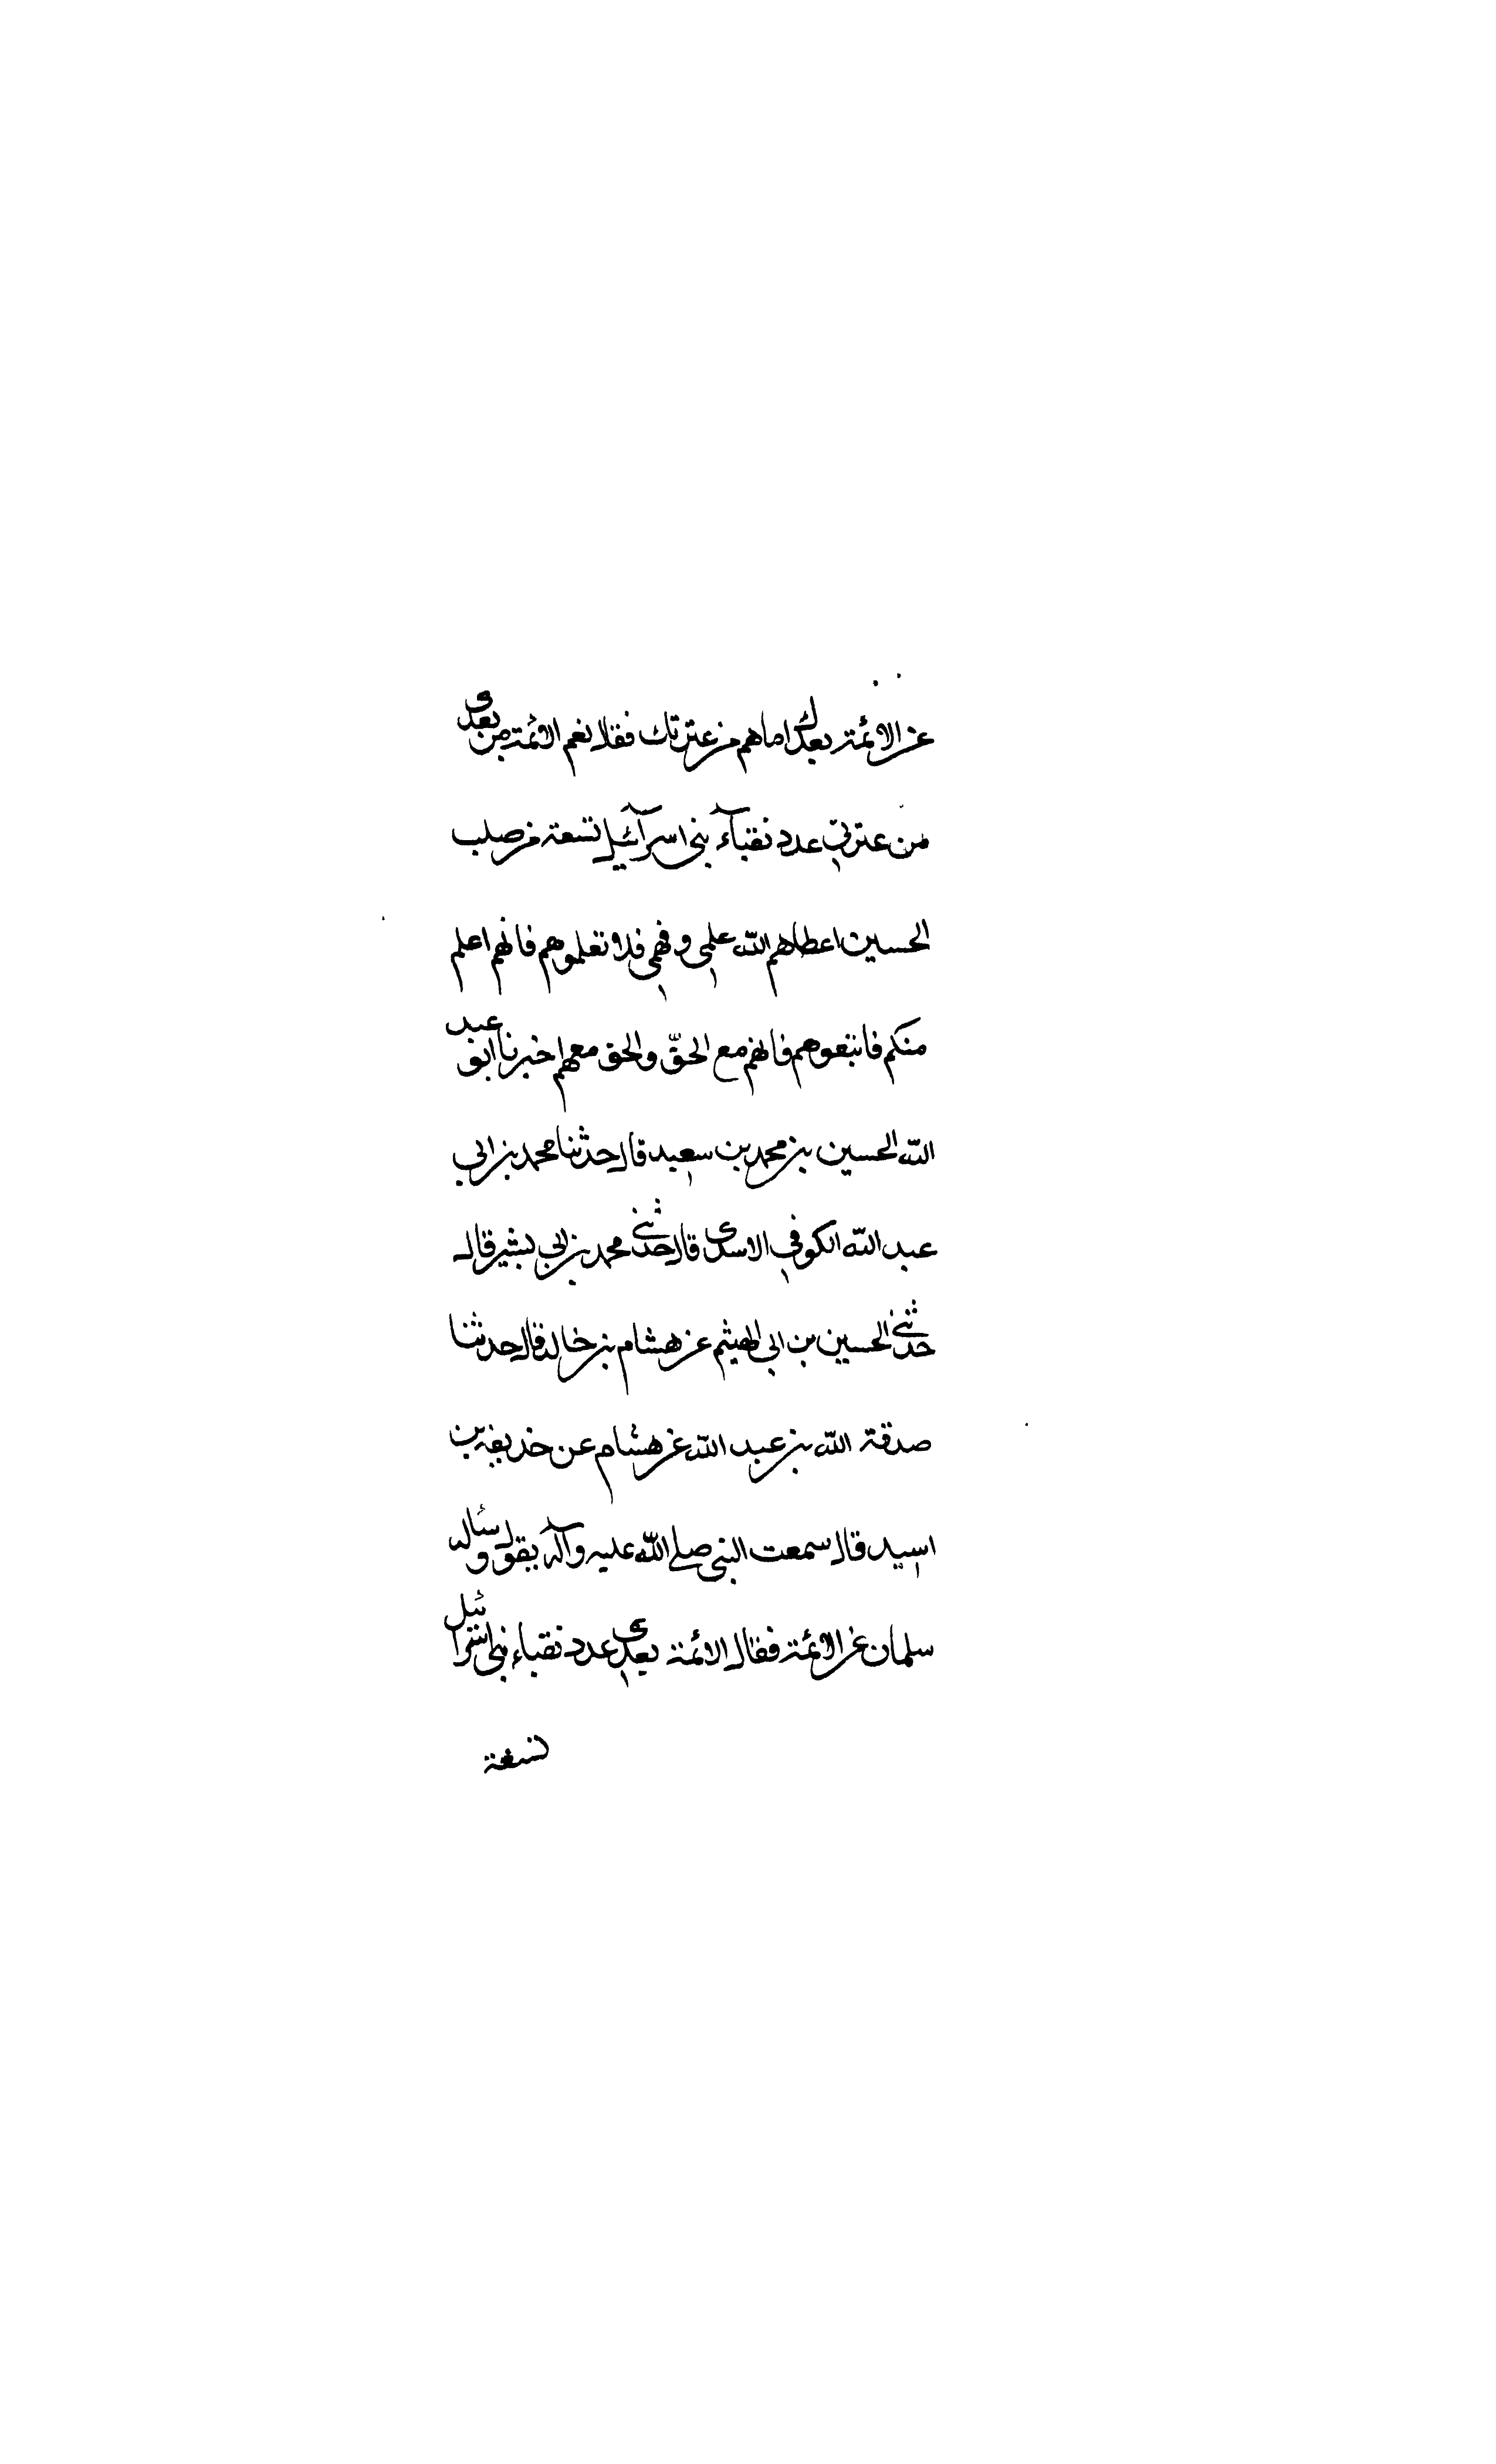 عن الائمة بعدك اما هم من عترتك فقال نعم الائمة من بعدى
من عترتي عدد نقبآء بنى اسرآئيل تسعة من صلب
الحسين اعطاهم الله علمي وفهمي فلا تعلموهم فانهم اعلم
منكم فاتبعوهم فانهم مع الحقّ والحق معهم اخبرنا ابو عبد
الله الحسين بن محمد بن سعيد قال حدثنا محمد بن ابي
عبد الله الكوفي الاسدى قال حدثني محمد بن ابي بشير قال
حدثني الحسين بن ابي الهيثم عن هشام بن خالد قال حدثنا
صدقة الله بن عبد الله عن هشام عن حذيفة بن
اسيد قال سمعت النبى صلى الله عليه وآله يقول وسئاله
سلمان عن الائمة فقال الائمة بعدي عدد نقباء بنى اسرائيل
تسعة